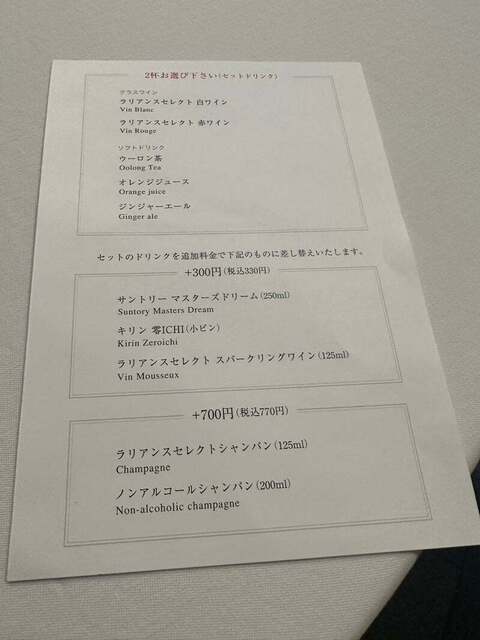 2杯お選び下さい(セットドリンク)
グラスワイン
ラリアンスセレクト 白ワイン
Vin Blanc
ラリアンスセレクト 赤ワイン
Vin Rouge
ソフトドリンク
ウーロン茶
Oolong Tea
オレンジジュース
Orange juice
ジンジャーエール
Ginger ale
セットのドリンクを追加料金で下記のものに差し替えいたします。
+300円(税込330円)
サントリー マスターズドリーム(250ml)
Suntory Masters Dream
キリン 零ICHI(小ビン)
Kirin Zeroichi
ラリアンスセレクト スパークリングワイン(125ml)
Vin Mousseux
+700円(税込770円)
ラリアンスセレクトシャンパン(125ml)
Champagne
ノンアルコールシャンパン(200ml)
Non-alcoholic champagne